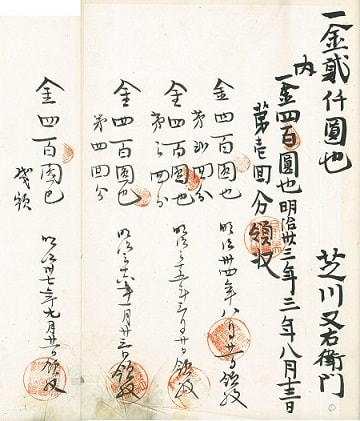 一金貳仟圓也
芝川又右衛門
内
一金四百圓也 明治卅三年
八月十三日
第壱回分領収
金四百圓也
第弐回分
明治卅四年八月
領収
金四百圓也
第三回分
明治三十五年三月
領収
金四百圓也
第四回分
明治三十六年一月廿三日領収
金四百圓也
残額
明治卅七年九月
領収